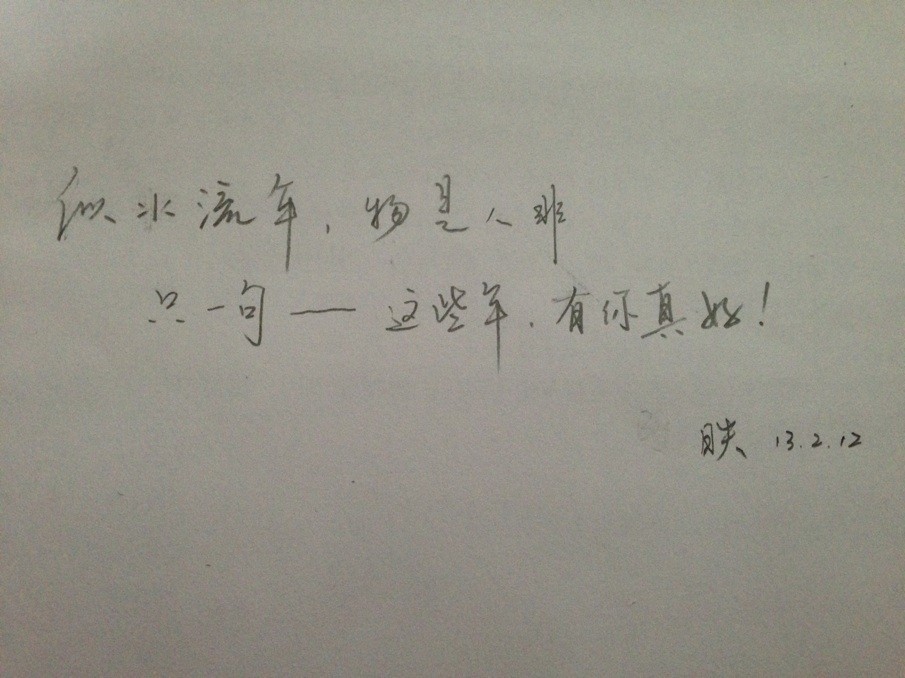 似水流年，物是人非
只一句——这些年，有你真好！
13.2.12